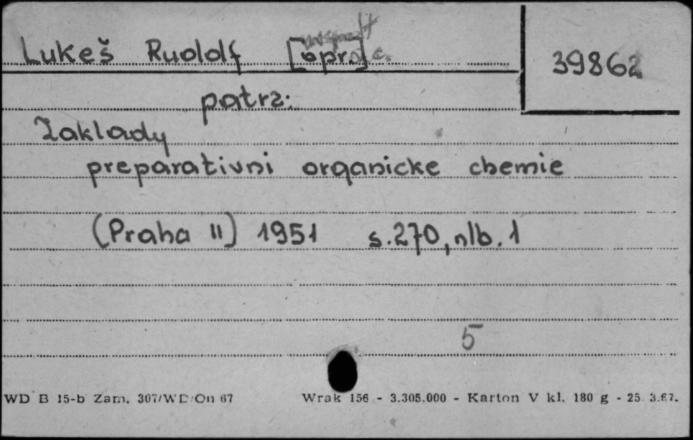 Lukeš Rudolf [opr.] 39862
patrz:
Zaklady
preparativni organicke chemie
(Praha II) 1951 s.270, nlb. 1
5
WD B 15-b Zam. 307/WD/On 67 Wrak 156 - 3.305.000 - Karton V kl. 180 g - 25. 3.67.